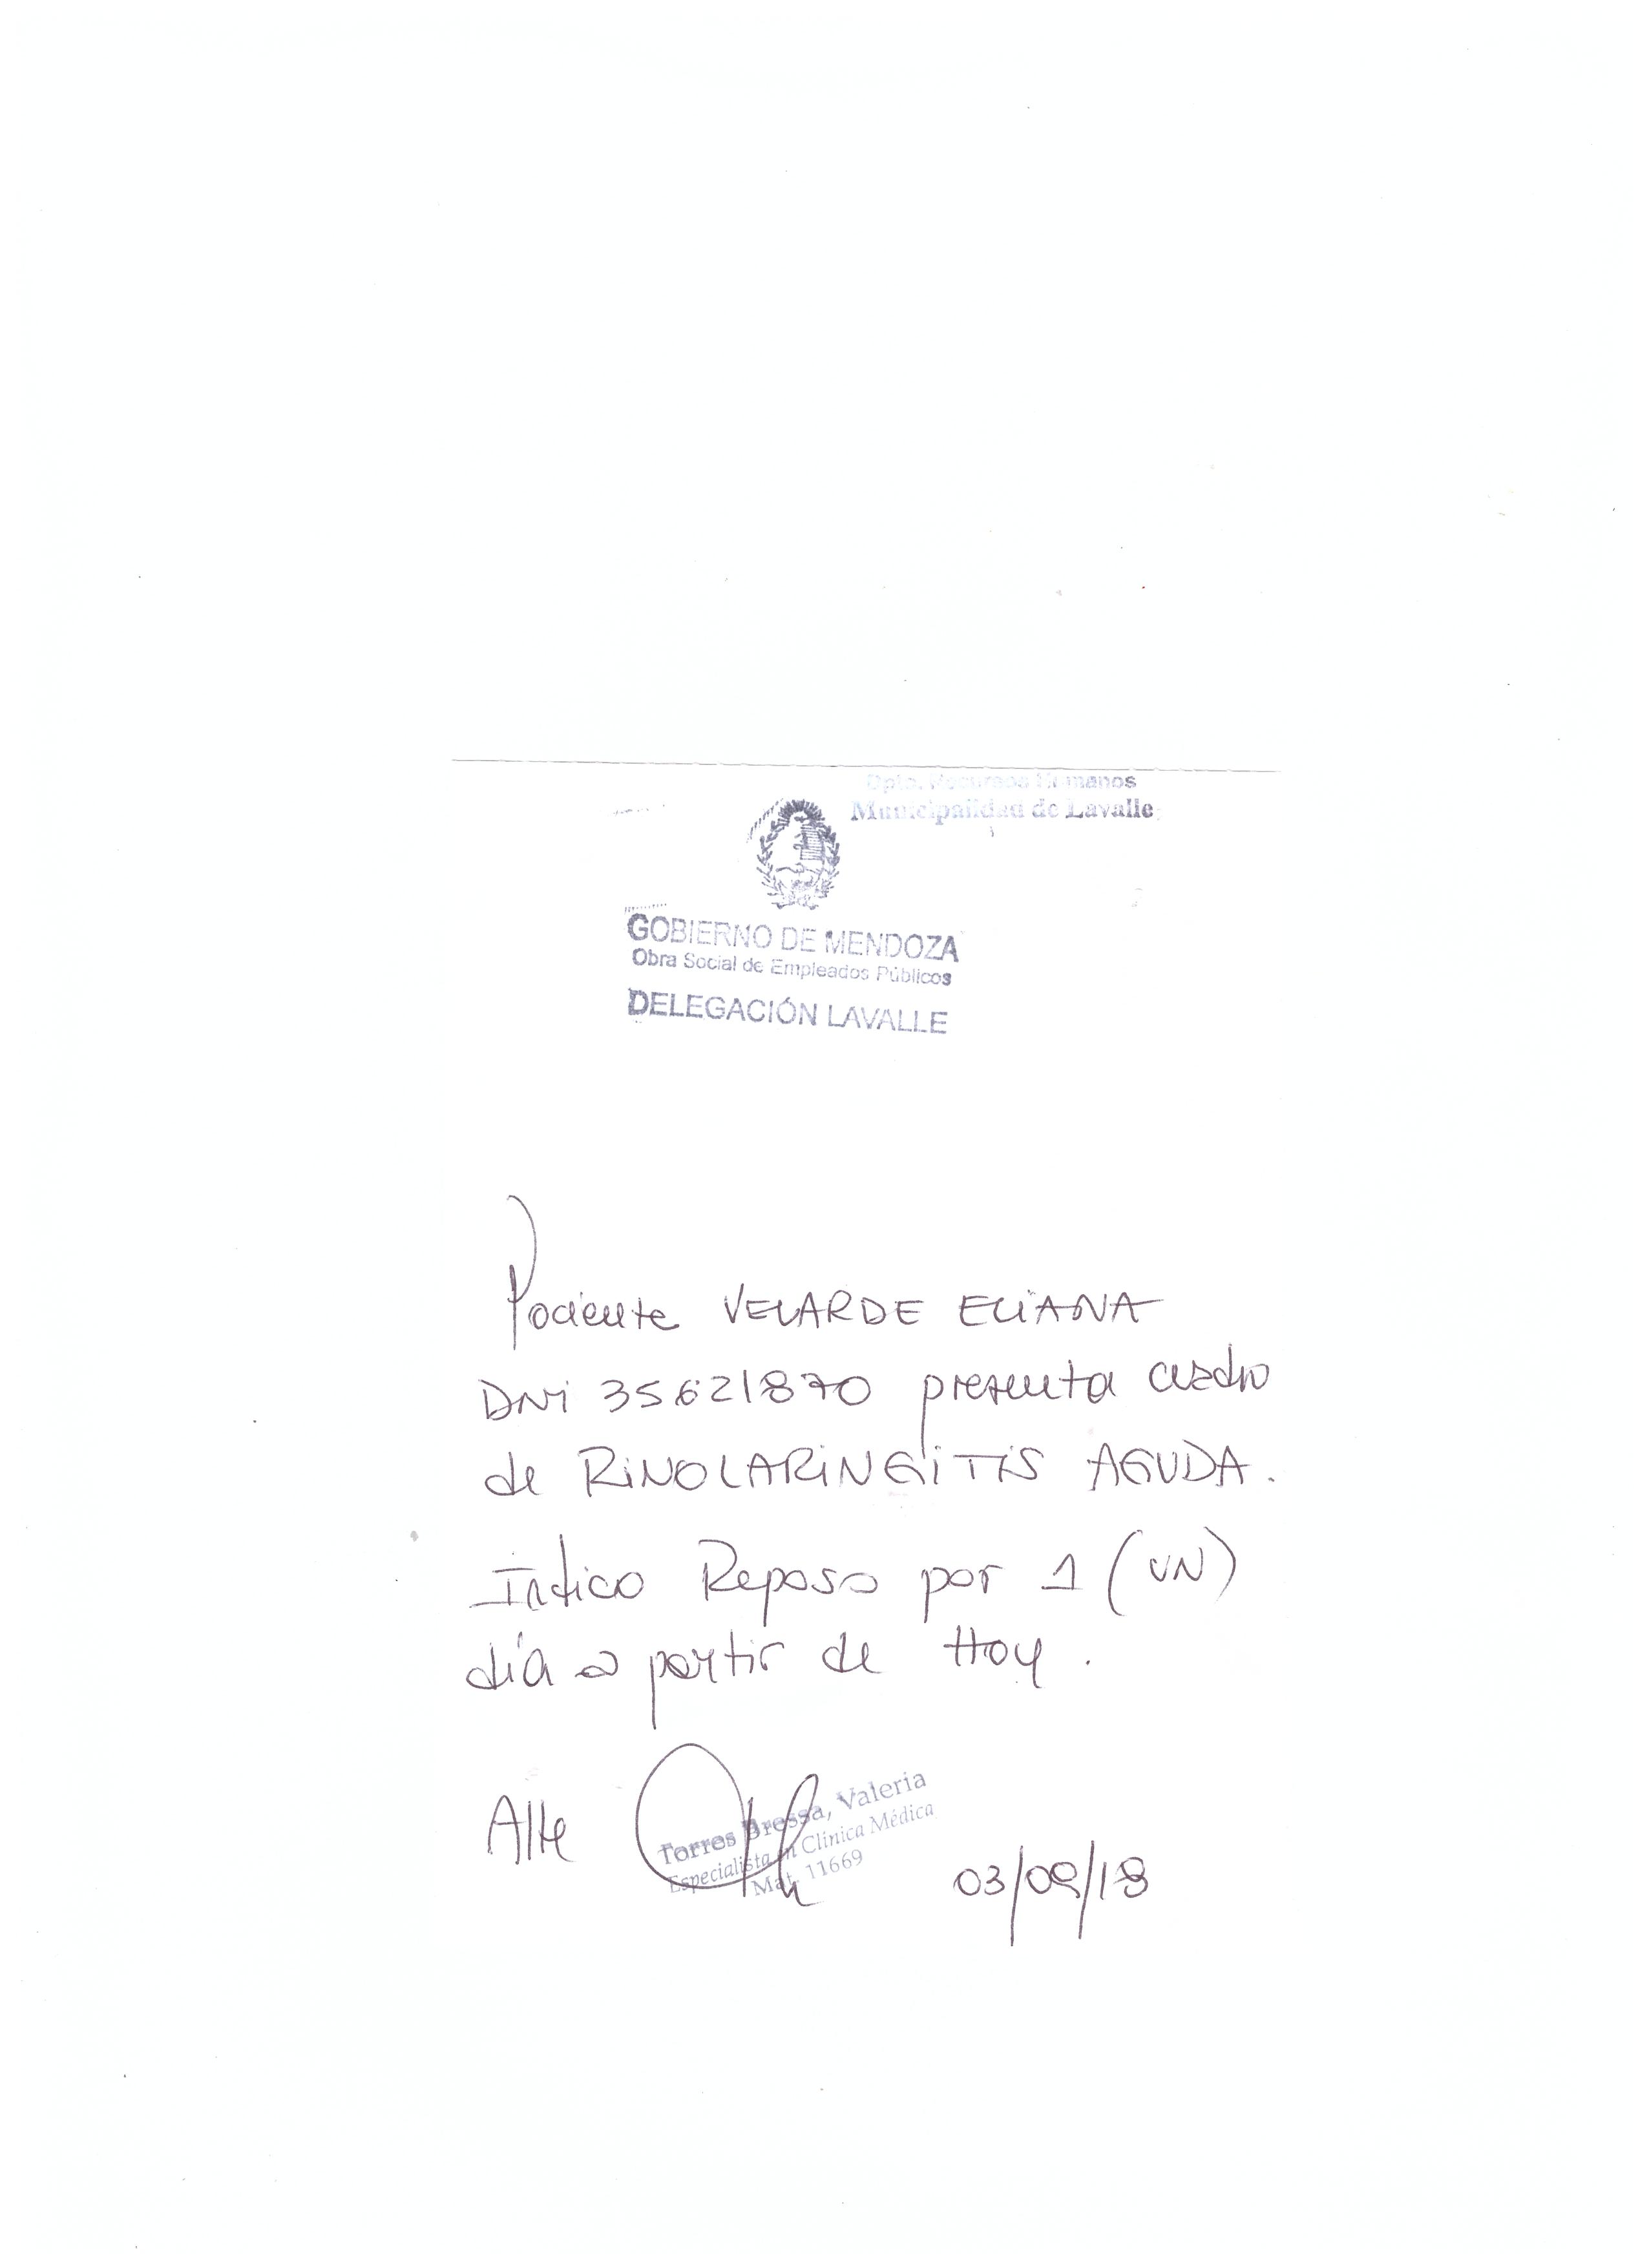 Dpto. Recursos Humanos
Municipalidad de Lavalle
GOBIERNO DE MENDOZA
Obra Social de Empleados Públicos
DELEGACIÓN LAVALLE
Paciente VELARDE ELIANA
DNi 35621870 presenta cuadro
de RiNOLARiNGiTiS AGUDA.
Indico Reposo por 1 (UN)
día a partir de Hoy.
Atte
Torres Bressa, Valeria
Especialista en Clínica Médica
Mat. 11669
03/09/18